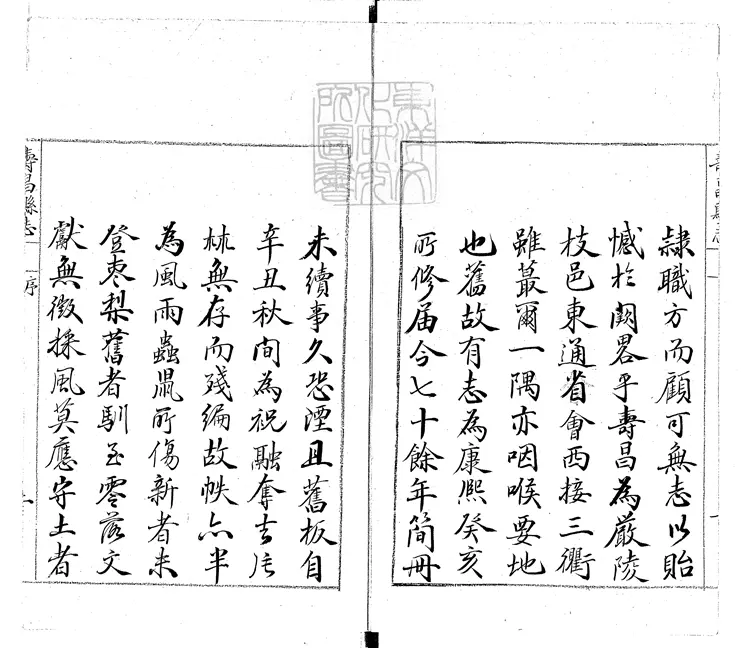 東洋文
化研究
所圖書
隸職方而顧可無志以貽
憾於闕畧乎壽昌為嚴陵
枝邑東通省會西接三衢
雖蕞爾一隅亦咽喉要地
也舊故有志為康熙癸亥
所修届今七十餘年簡冊
未續事久恐湮且舊板自
辛丑秋間為祝融奪去片
林無存而殘編故帙亦半
為風雨蟲鼠所傷新者未
登棗梨舊者馴至零落文
獻無徵採風莫應守土者
壽昌縣志 序